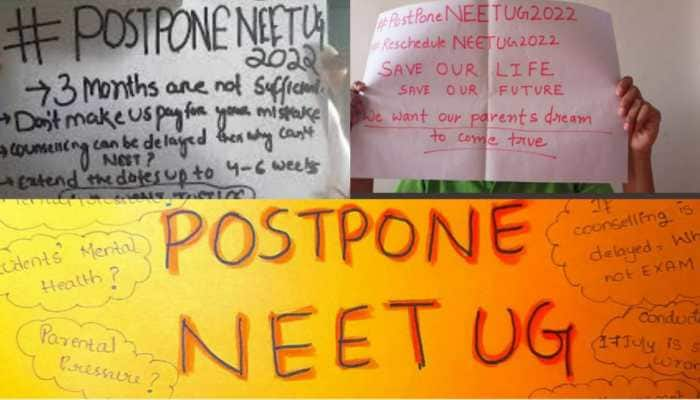 #POSTPONE NEET UG
2022
→3 Months are not Sufficient
→Don't make us pay for your mistake
→counselling can be delayed then why can't
NEET?
→extend the dates up to 4-6 weeks
#PostPone NEETUG2022
#Reschedule NEETUG2022
SAVE OUR LIFE
SAVE OUR FUTURE
We want our parents dream
to come true
POSTPONE
NEET UG
Mental
Health?
Parental
Pressure?
If
counselling is
delayed, Wh
not EXAM
Conduct
17 July is s
wron